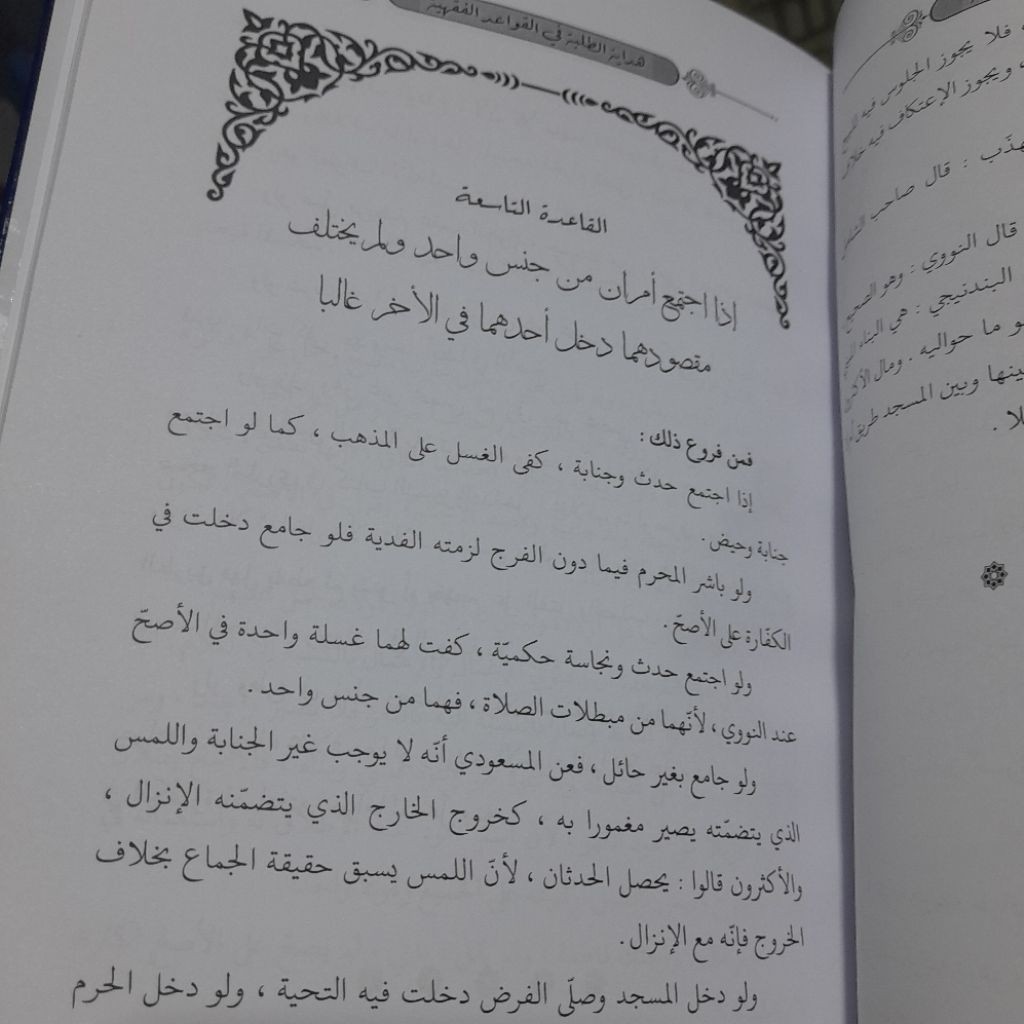 هداية الطلبة في القواعد الفقهية
القاعدة التاسعة
إذا اجتمع أمران من جنس واحد ولم يختلف
مقصودهما دخل أحدهما في الأخر غالبا
فمن فروع ذلك :
إذا اجتمع حدث وجنابة ، كفى الغسل على المذهب ، كما لو اجتمع
جنابة وحيض .
ولو باشر المحرم فيما دون الفرج لزمته الفدية فلو جامع دخلت في
الكفّارة على الأصحّ .
ولو اجتمع حدث ونجاسة حكميّة ، كفت لهما غسلة واحدة في الأصحّ
عند النووي ، لأنّهما من مبطلات الصلاة ، فهما من جنس واحد .
ولو جامع بغير حائل ، فعن المسعودي أنّه لا يوجب غير الجنابة واللمس
الذي يتضمّنه يصير مغمورا به ، كخروج الخارج الذي يتضمّنه الإنزال ،
والأكثرون قالوا : يحصل الحدثان ، لأنّ اللمس يسبق حقيقة الجماع بخلاف
الخروج فإنّه مع الإنزال .
ولو دخل المسجد وصلّى الفرض دخلت فيه التحية ، ولو دخل الحرم
فلا يجوز الجلوس فيه
ويجوز الإعتكاف فيه
قال صاحب
قال النووي : وهو الصحيح
البندنيجي : هي البناء
ما حواليه . ومال
وبين المسجد طريق